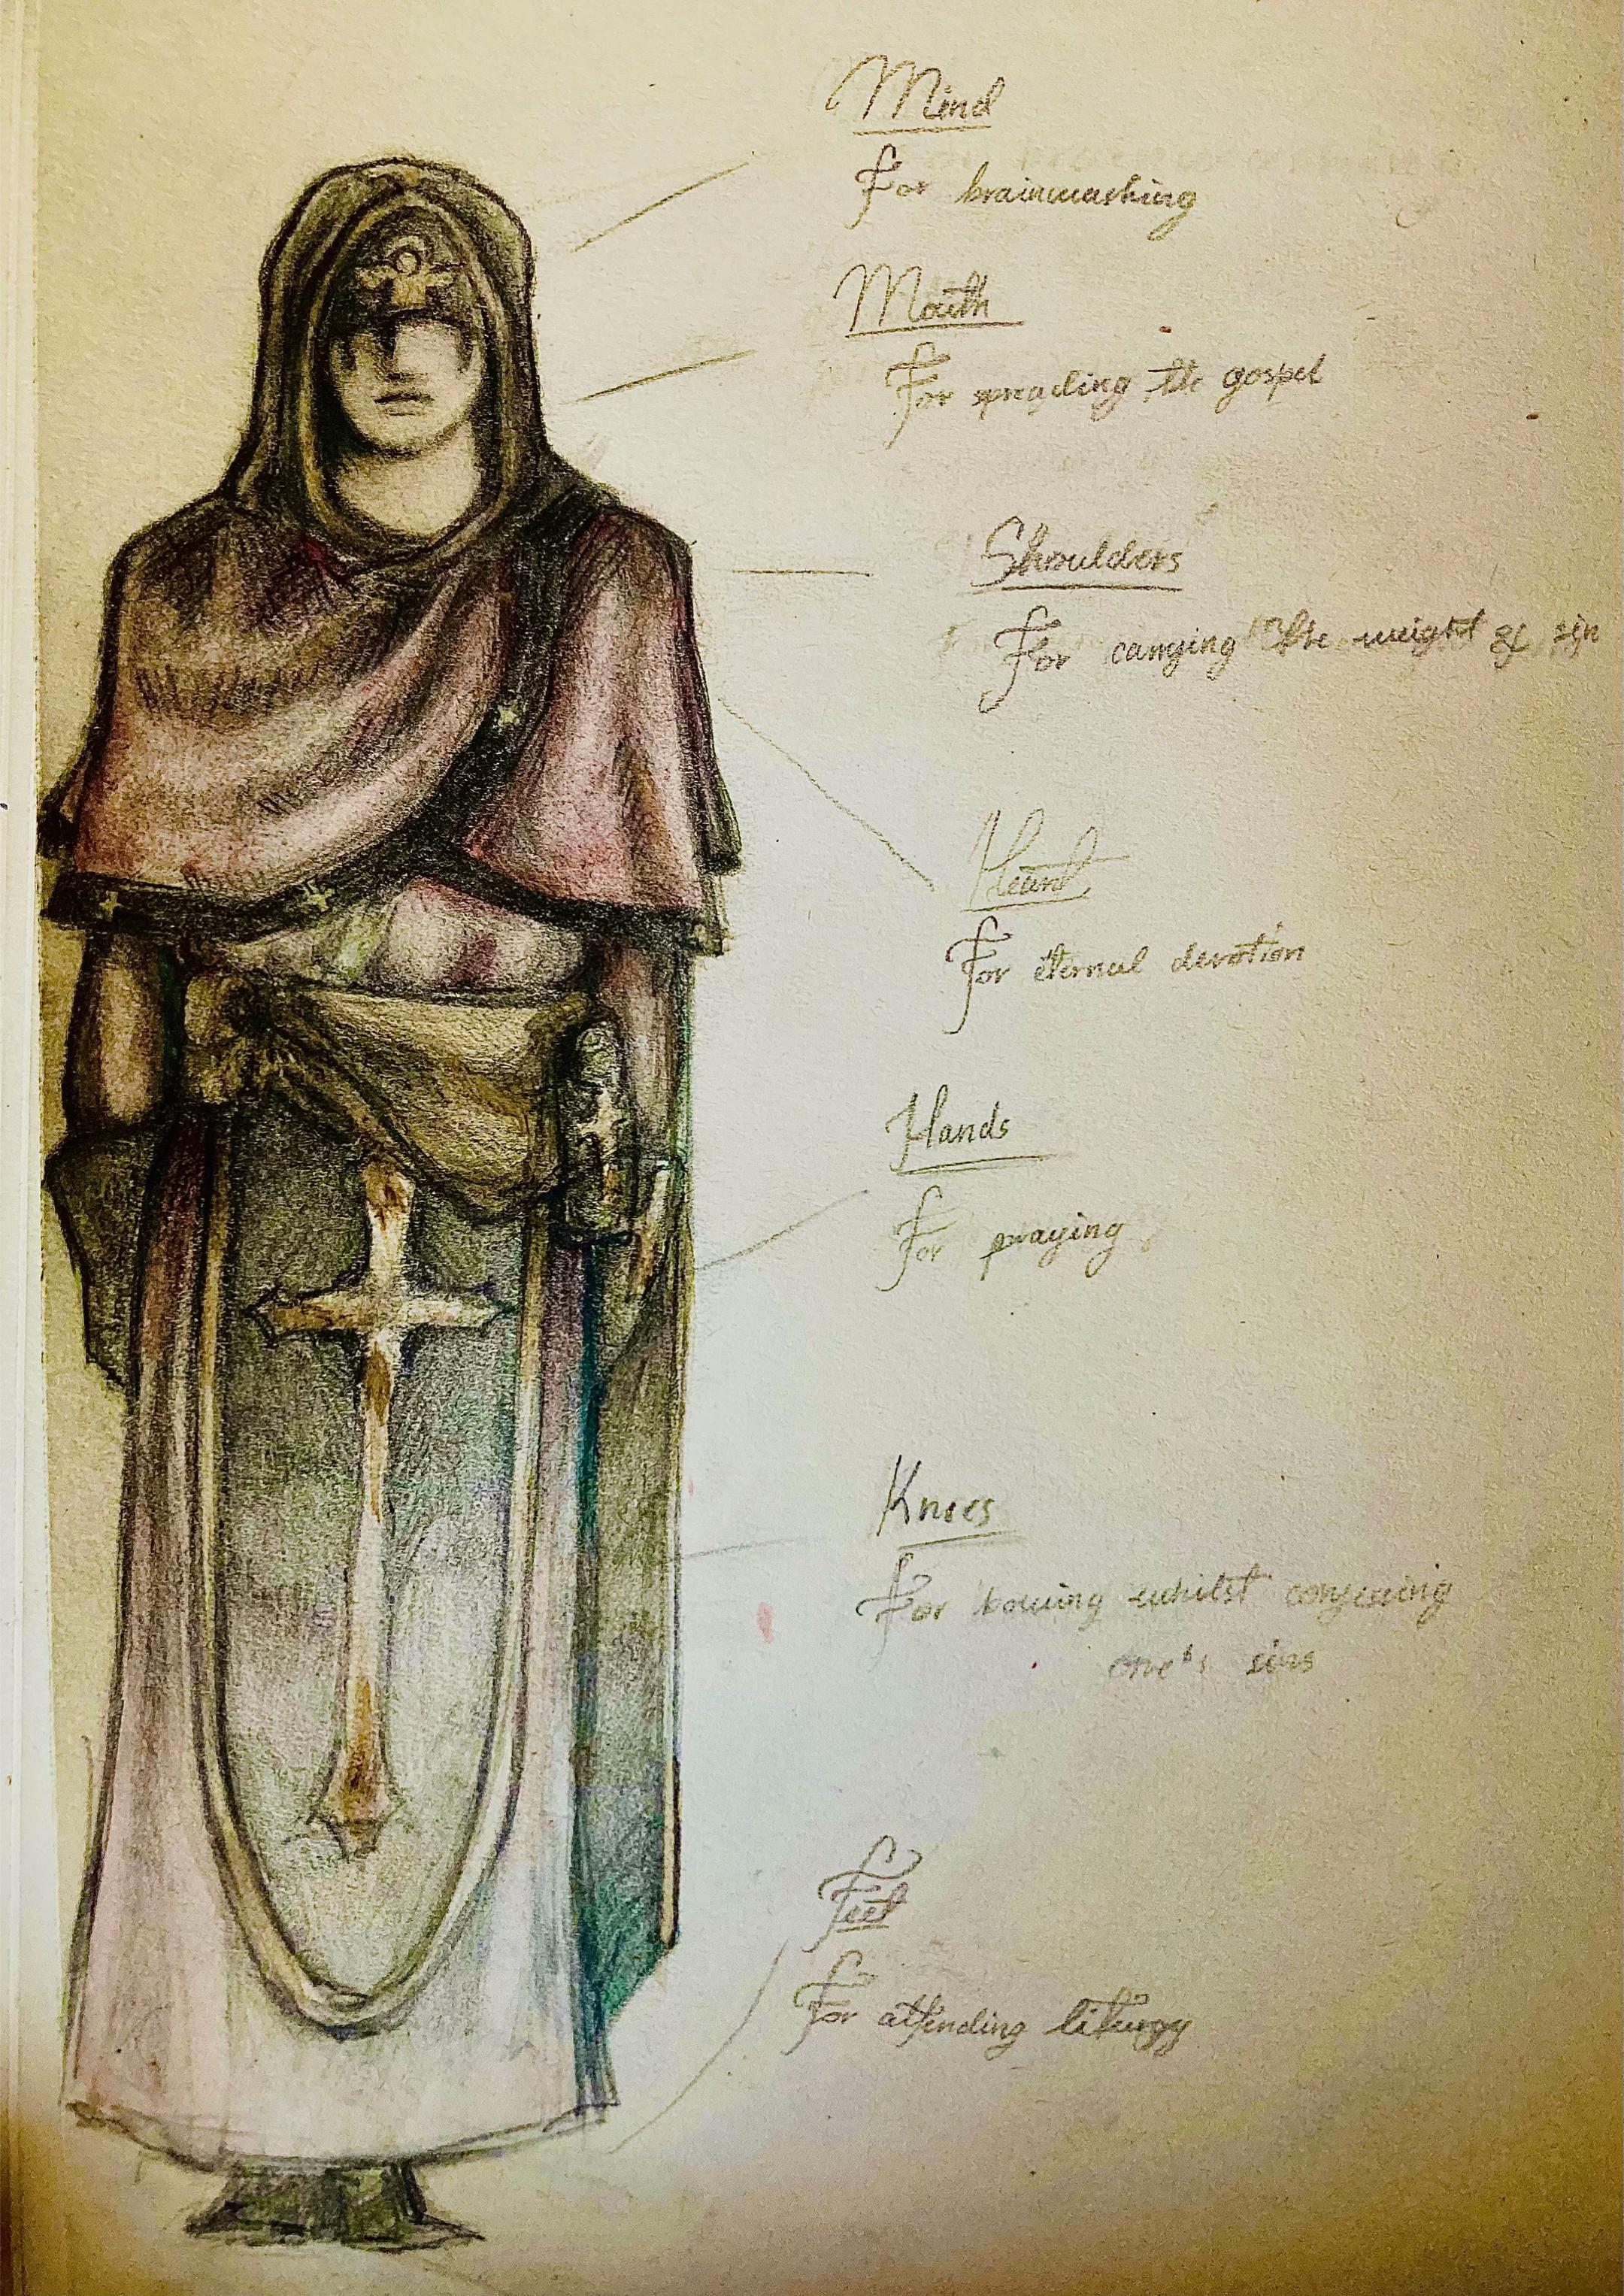 Mind
For brainwashing
Mouth
For spreading the gospel
Shoulders
For carrying the weight of sin
Heart
For eternal devotion
Hands
For praying
Knees
For bowing whilst confessing
one's sins
Feet
For attending liturgy